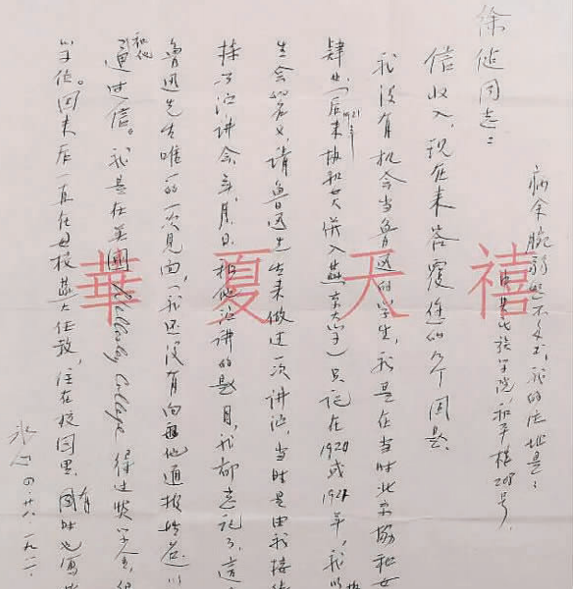 徐 同志：
信收入，现在来答覆您的 个问题。
我没有机会当鲁迅的学生，我是在当时北京协和女
肄业（后来1921年协和女大併入燕京大学）只记在1920或1921年，我以
生会的名义，请鲁迅先生来做过一次讲演，当时是由我接待
演讲会，年，月，日，和他演讲的题目，我都忘记了，这
鲁迅先生唯一的一次见面，我还没有向他通报姓名。
和他通过信。我是在美国Wellesley College得过奖学金，
学位。回来后一直在母校燕大任教，住在校园里，有
冰心 四、廿八、一九八
病余腕弱 我的住址是：
民族学院和平楼208号。
華夏天禧